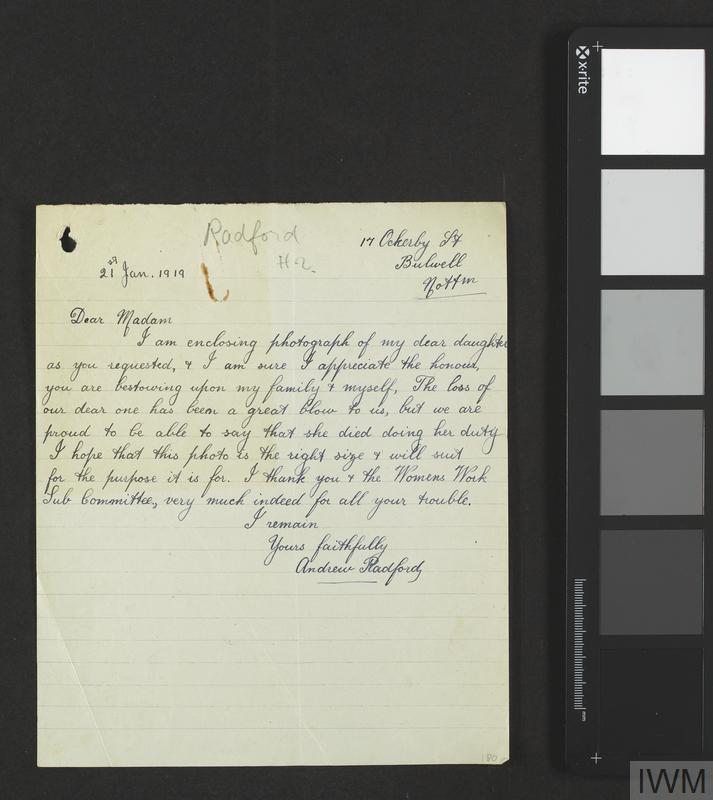 Radford
H2.
17 Ockerby St
Bulwell
Nottm
21st Jan. 1919
Dear Madam
I am enclosing photograph of my dear daughter
as you requested, & I am sure I appreciate the honour,
you are bestowing upon my family & myself, The loss of
our dear one has been a great blow to us, but we are
proud to be able to say that she died doing her duty
I hope that this photo is the right size & will suit
for the purpose it is for. I thank you & the Womens Work
Sub Committee, very much indeed for all your trouble.
I remain
Yours faithfully
Andrew Radford,
180
x-rite
mm
IWM